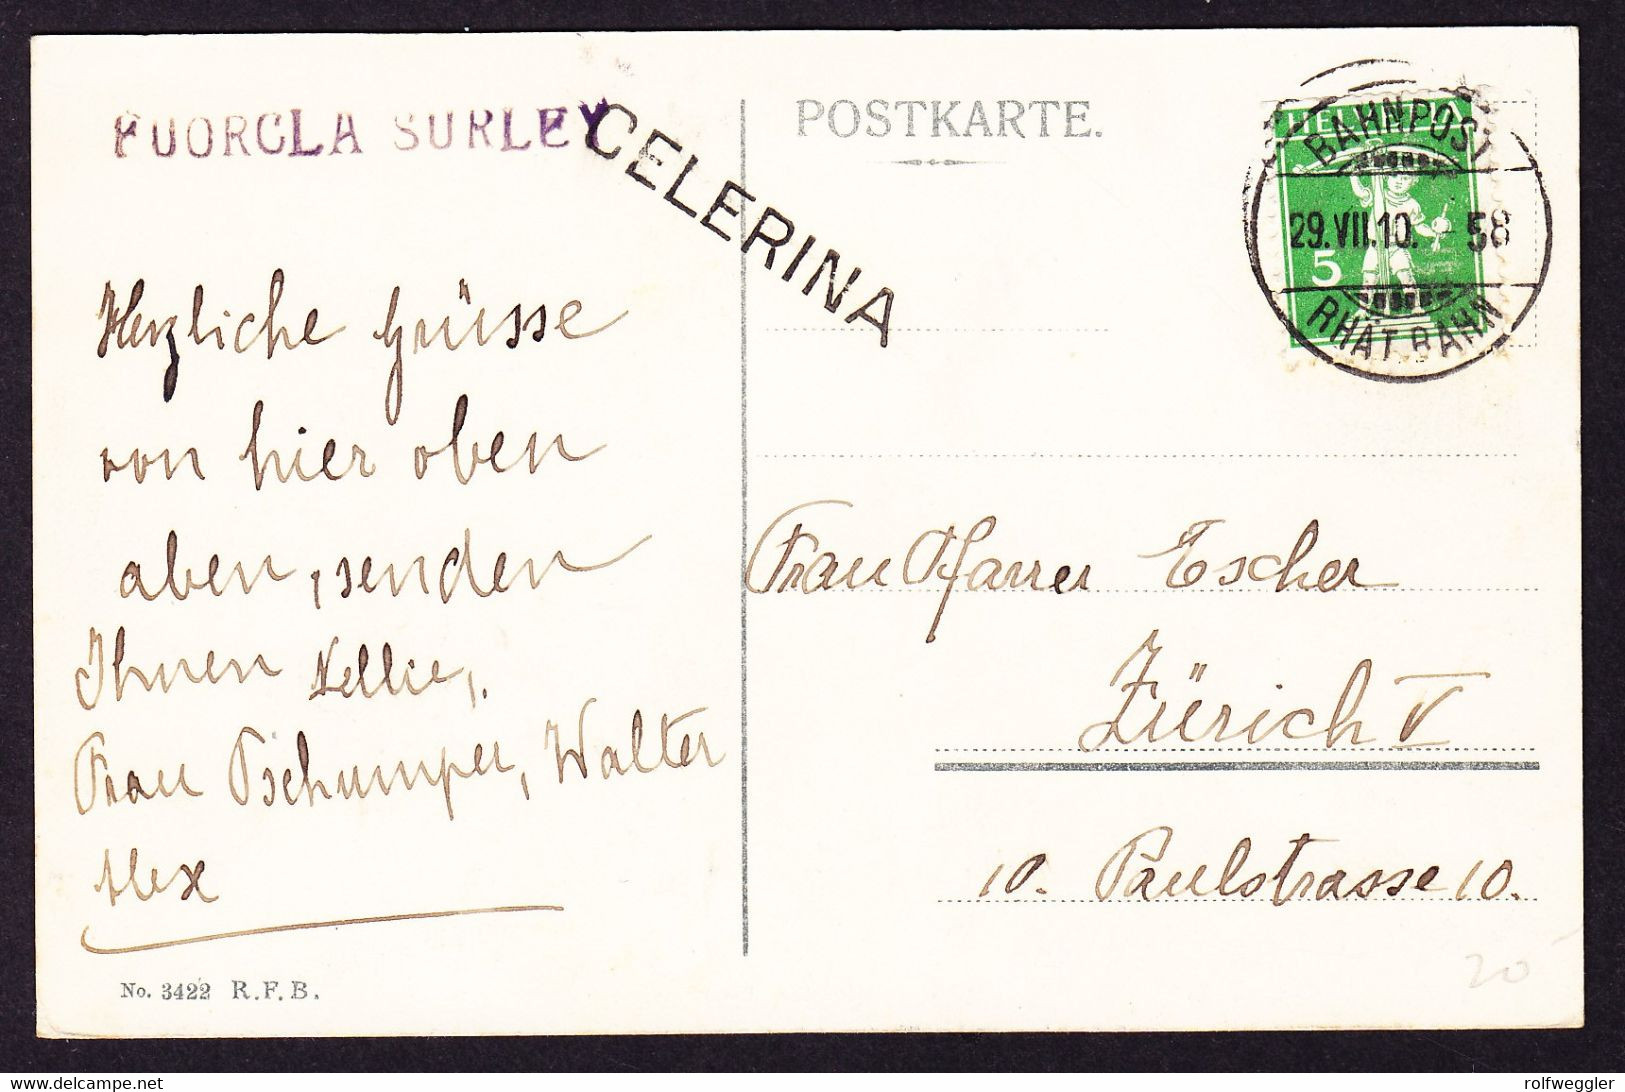 FUORCLA SURLEY
CELERINA
POSTKARTE.
HELVETIA
5
BAHNPOST
29.VII.10. - 58
RHÄT. BAHN
Herzliche Grüsse
von hier oben
aben, senden
Ihnen Nellie,
Frau Tschumper, Walter
Alex
Frau Pfarrer Escher
Zürich V
10. Paulstrasse 10.
No. 3422 R.F.B.
20
delcampe.net
rolfweggler